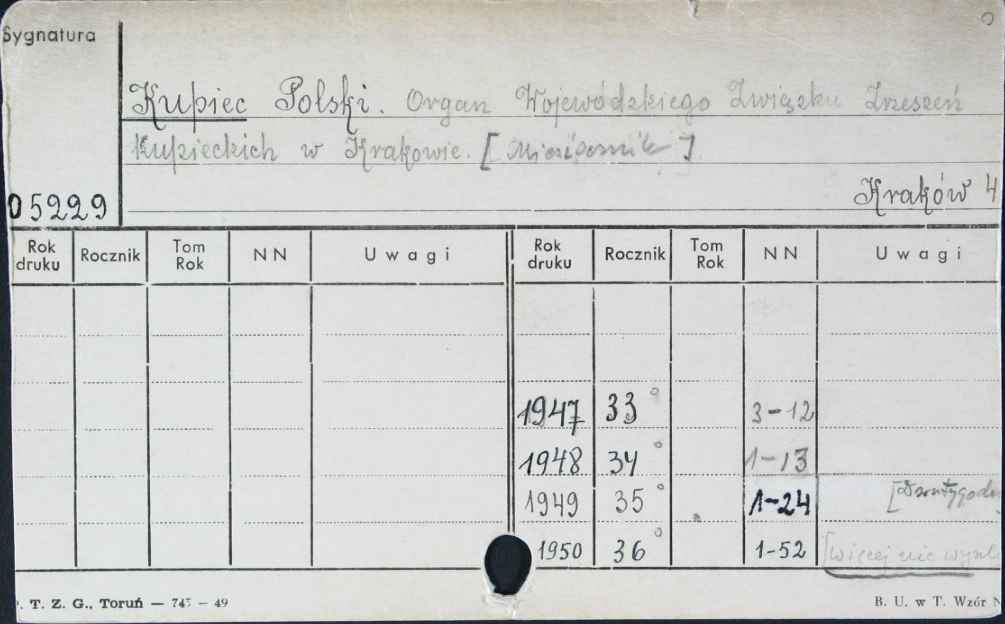 Sygnatura
Kupiec Polski. Organ Wojewódzkiego Związku Zrzeszeń
Kupieckich w Krakowie. [Miesięcznik]
05229
Kraków 4
Rok druku Rocznik Tom Rok NN Uwagi Rok druku Rocznik Tom Rok NN Uwagi
1947 33° 3-12
1948 34° 1-13
1949 35° 1-24 [Dwutygodn
1950 36° 1-52 [więcej nie
. T. Z. G., Toruń — 745 — 49
B. U. w T. Wzór N